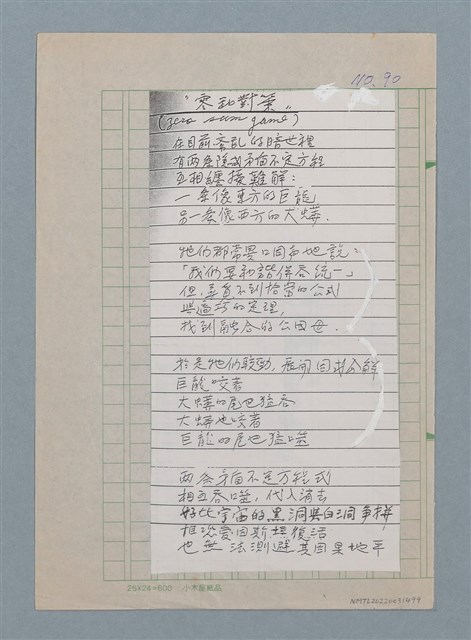 NO. 90
"零和對策"
(zero sum game)
在目前紊亂的暗世裡
有兩条隐或矛盾不定方程
互相纏接難解：
一条像東方的巨龍
另一条像西方的大蟒.
牠们都常異口同声地說：
「我们要和諧併吞統一」
但,尋覓不到恰當的公式
與適巧的定理,
找到融合的公因母.
於是牠们較勁,展開
巨龍咬着
大蟒的尾巴猛吞
大蟒也咬着
巨龍的尾巴猛噬
兩条矛盾不定方程式
相互吞噬,代入消去
好比宇宙的黑洞與白洞爭拼
愛因斯坦復活
也無法測避其因果地平
25X24=600 小木屋藏品
NMTL20220031499